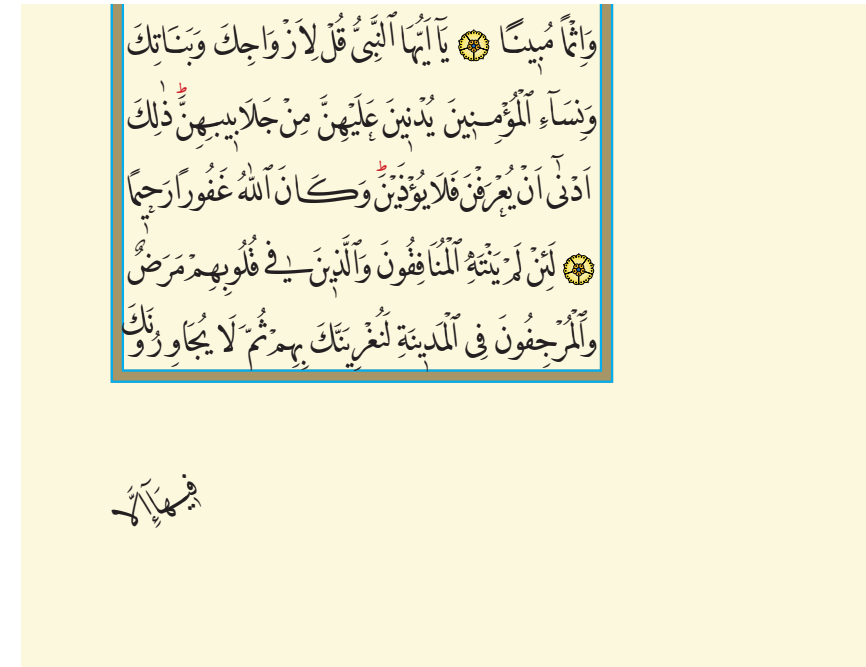 وَاِثْمًا مُبِينًا ۞ يَٓا اَيُّهَا ٱلنَّبِيُّ قُلْ لِاَزْوَاجِكَ وَبَنَاتِكَ
وَنِسَٓاءِ ٱلْمُؤْمِنِينَ يُدْنِينَ عَلَيْهِنَّ مِنْ جَلَابِيبِهِنَّۜ ذٰلِكَ
اَدْنٰٓى اَنْ يُعْرَفْنَ فَلَا يُؤْذَيْنَۜ وَكَانَ ٱللّٰهُ غَفُورًا رَحِيمًا
۞ لَئِنْ لَمْ يَنْتَهِ ٱلْمُنَافِقُونَ وَٱلَّذِينَ فِي قُلُوبِهِمْ مَرَضٌ
وَٱلْمُرْجِفُونَ فِي ٱلْمَدِينَةِ لَنُغْرِيَنَّكَ بِهِمْ ثُمَّ لَا يُجَاوِرُونَكَ
فِيهَٓا اِلَّا